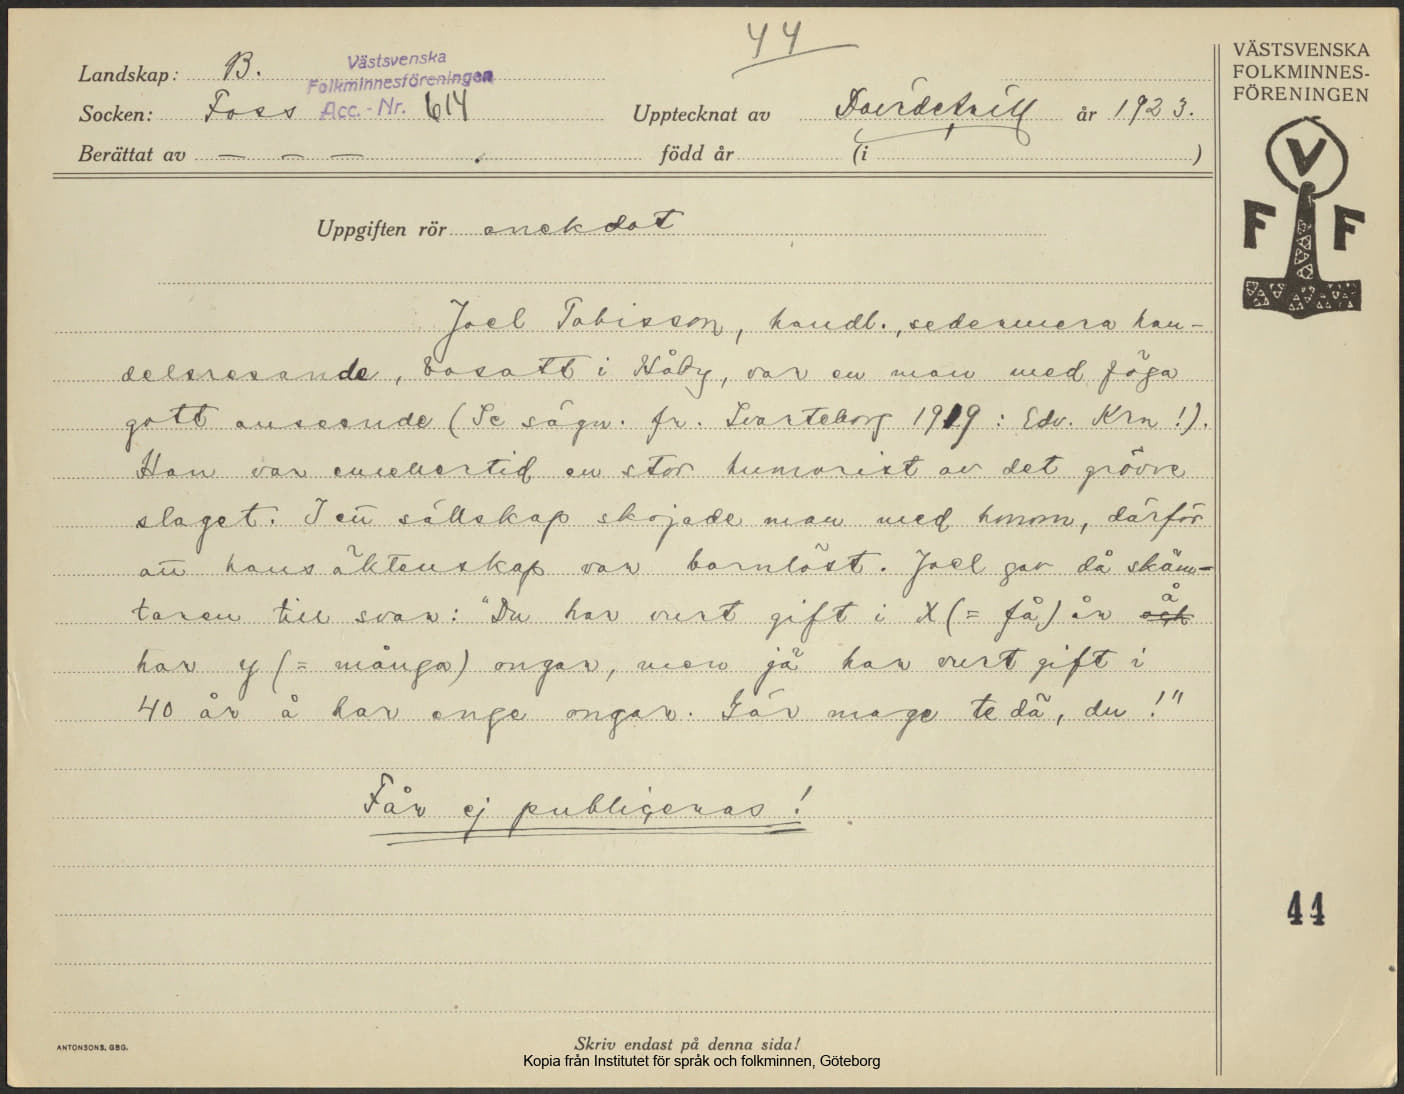 44
Landskap: B.
Västsvenska
Folkminnesföreningen
Acc.-Nr. 614
Socken: Foss
Upptecknat av David Arill år 1923.
Berättat av — — — . född år (i )
Uppgiften rör anekdot
Joel Tobisson, handl., sedermera han-
delsresande, bosatt i Håby, var en man med föga
gott anseende (Se sägn. fr. Svarteborg 1919: Edv. Krn!).
Han var emellertid en stor humorist av det grövre
slaget. I ett sällskap skojade man med honom, därför
att hans äktenskap var barnlöst. Joel gav då skäm-
taren till svar: "Du har vurt gift i X (= få) år å
har y (= många) ongar, men jä har vurt gift i
40 år å har enge ongar. Gör mage te dä, du!"
Får ej publiceras!
VÄSTSVENSKA
FOLKMINNES-
FÖRENINGEN
V
F F
44
ANTONSONS, GBG.
Skriv endast på denna sida!
Kopia från Institutet för språk och folkminnen, Göteborg